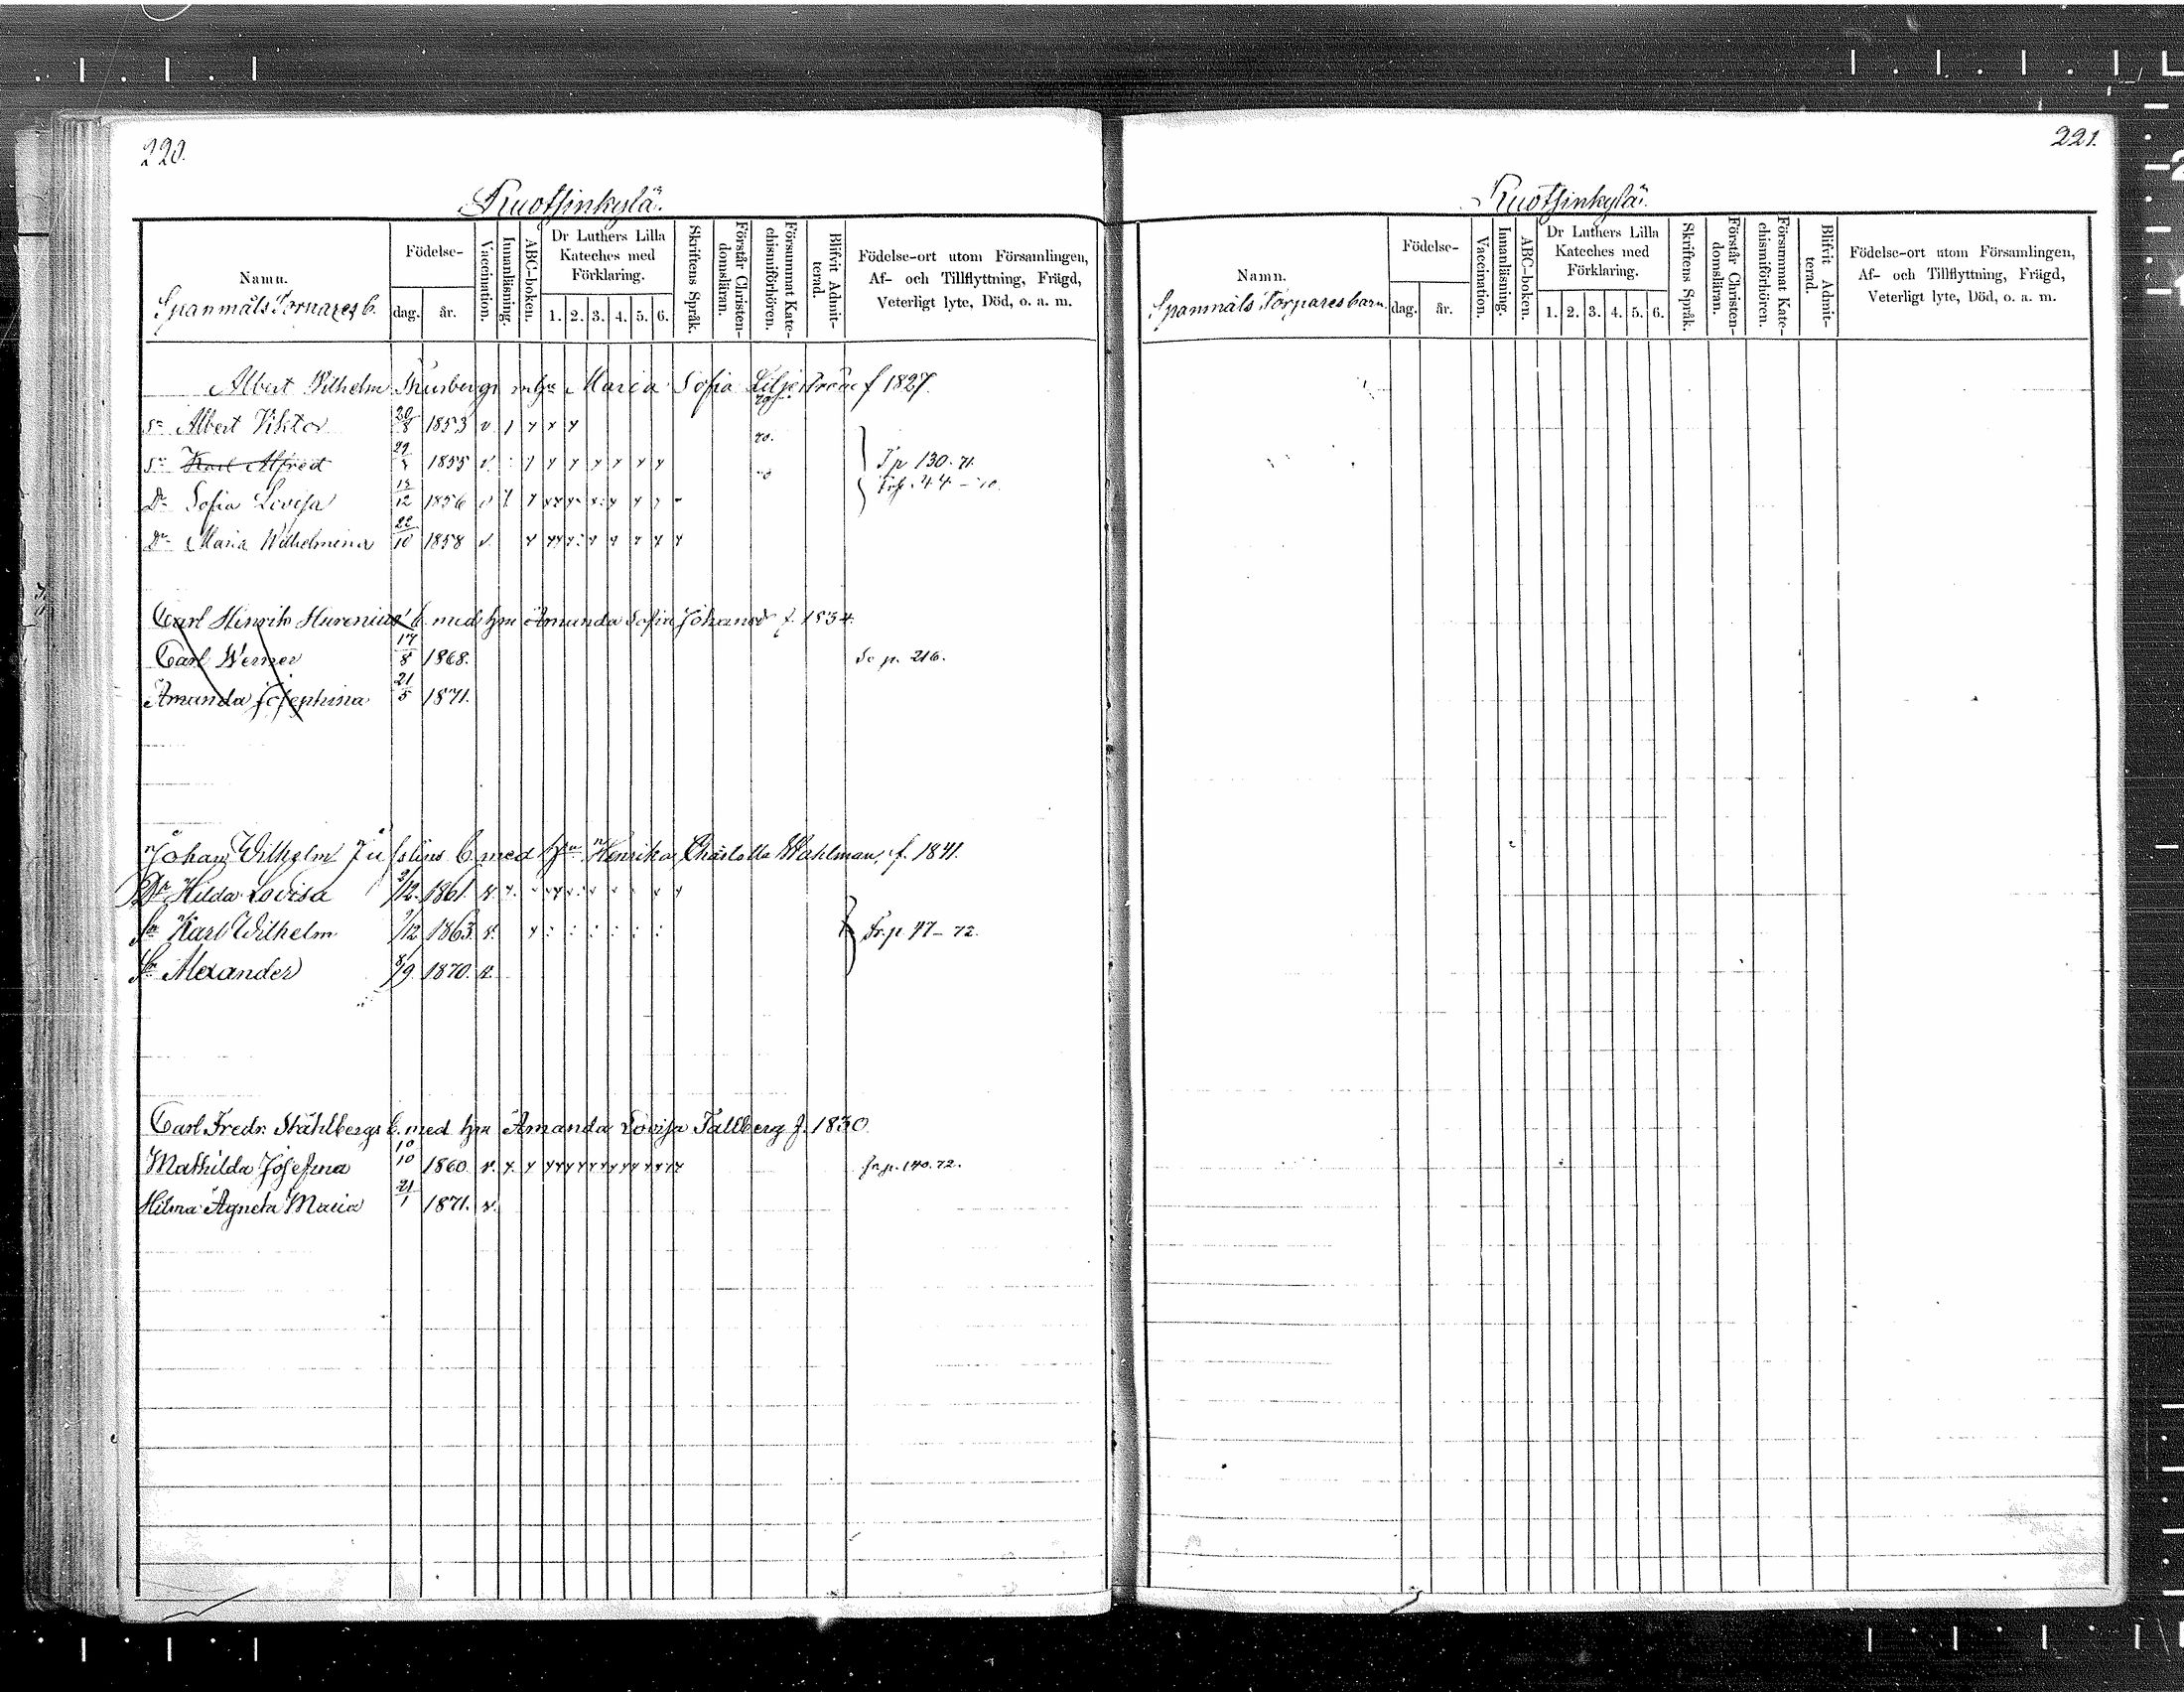 220.
Ruotsinkylä.
Namn.
Spanmåls Torpares b.
Födelse-
dag.
år.
Vaccination.
Innanläsning.
ABC-boken.
Dr Luthers Lilla Kateches med Förklaring.
1. 2. 3. 4. 5. 6.
Skriftens Språk.
Förstår Christen-domsläran.
Försummat Kate-chismiförhören.
Blifvit Admit-terad.
Födelse-ort utom Församlingen,
Af- och Tillflyttning, Frägd,
Veterligt lyte, Död, o. a. m.
Albert Wilhelm Thusbergs m hu Maria Sofia Liljeström f 1827.
Sn Albert Viktor 20/8 1853 v
70.
Sn Karl Alfred 1855 v. T p 130. 71.
Dr Sofia Lovisa 12 1856 v 44
Dr Maria Wilhelmina 22/10 1858 v.
Carl Henrik Hurenius' b. med hu Amanda Sofia Johansd f. 1834.
Carl Werner 17/8 1868. Se p. 216.
Amanda Josephina 21/5 1871.
Johan Wilhelm Juslins b med hu Henrika Charlotta Wahlman, f. 1841.
Dr Hilda Lovisa 2/12. 1861. v.
Sn Karl Wilhelm 1/12 1863. v. Fr. p 77 - 72.
Sn Alexander 8/9 1870. v.
Carl Fredr. Ståhlbergs b. med hu Amanda Lovisa Tallberg f. 1830
Mathilda Josefina 10/10 1860. v. fr. p. 140. 72.
Hilma Agneta Maria 21/1 1871. v.
221.
Ruotsinkylä.
Namn.
Spanmåls Torpares barn.
Födelse-
dag.
år.
Vaccination.
Innanläsning.
ABC-boken.
Dr Luthers Lilla Kateches med Förklaring.
1. 2. 3. 4. 5. 6.
Skriftens Språk.
Förstår Christen-domsläran.
Försummat Kate-chismiförhören.
Blifvit Admit-terad.
Födelse-ort utom Församlingen,
Af- och Tillflyttning, Frägd,
Veterligt lyte, Död, o. a. m.